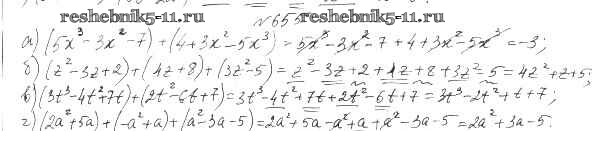 reshebnik5-11.ru
№655
а) (5x³-3x²-7)+(4+3x²-5x³)=5x³-3x²-7+4+3x²-5x³=-3;
б) (z²-3z+2)+(4z+8)+(3z²-5)=z²-3z+2+4z+8+3z²-5=4z²+z+5;
в) (3t³-4t²+7t)+(2t²-6t+7)=3t³-4t²+7t+2t²-6t+7=3t³-2t²+t+7;
г) (2a²+5a)+(-a²+a)+(a²-3a-5)=2a²+5a-a²+a+a²-3a-5=2a²+3a-5.
reshebnik5-11.ru